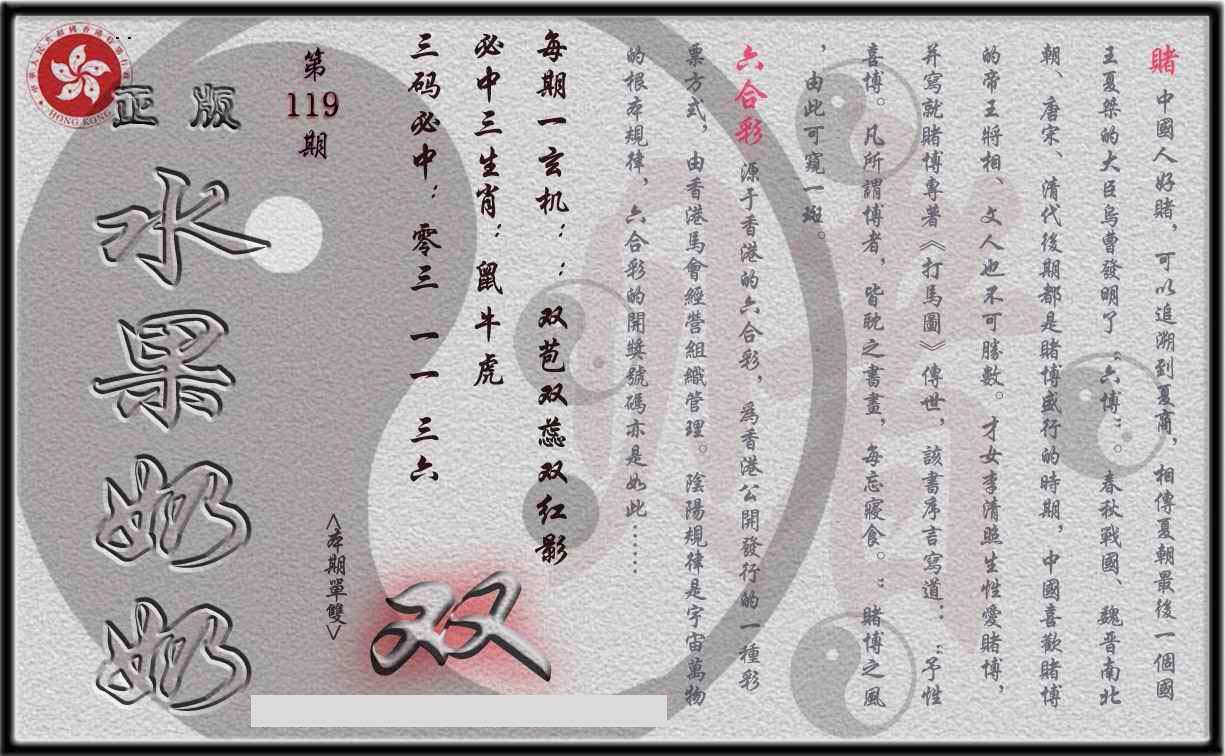 賭 中國人好賭，可以追溯到夏商，相傳夏朝最後一個國
王夏桀的大臣烏曹發明了“六博”。春秋戰國、魏晋南北
朝、唐宋、清代後期都是賭博盛行的時期，中國喜歡賭博
的帝王將相、文人也不可勝數。才女李清照生性愛賭博，
并寫就賭博專著《打馬圖》傳世，該書序言寫道：：“予性
喜博。凡所謂博者，皆耽之書畫，每忘寢食。”：賭博之風
，由此可窺一斑。
六合彩 源于香港的六合彩，爲香港公開發行的一種彩
票方式，由香港馬會經營組織管理。陰陽規律是宇宙萬物
的根本規律，六合彩的開獎號碼亦是如此……
每期一玄机：：双苞双蕊双红影
必中三生肖：鼠牛虎
三码必中：零三 一一 三六
第
119
期
<本期單雙>
双
正版
水果奶奶
HONG KONG